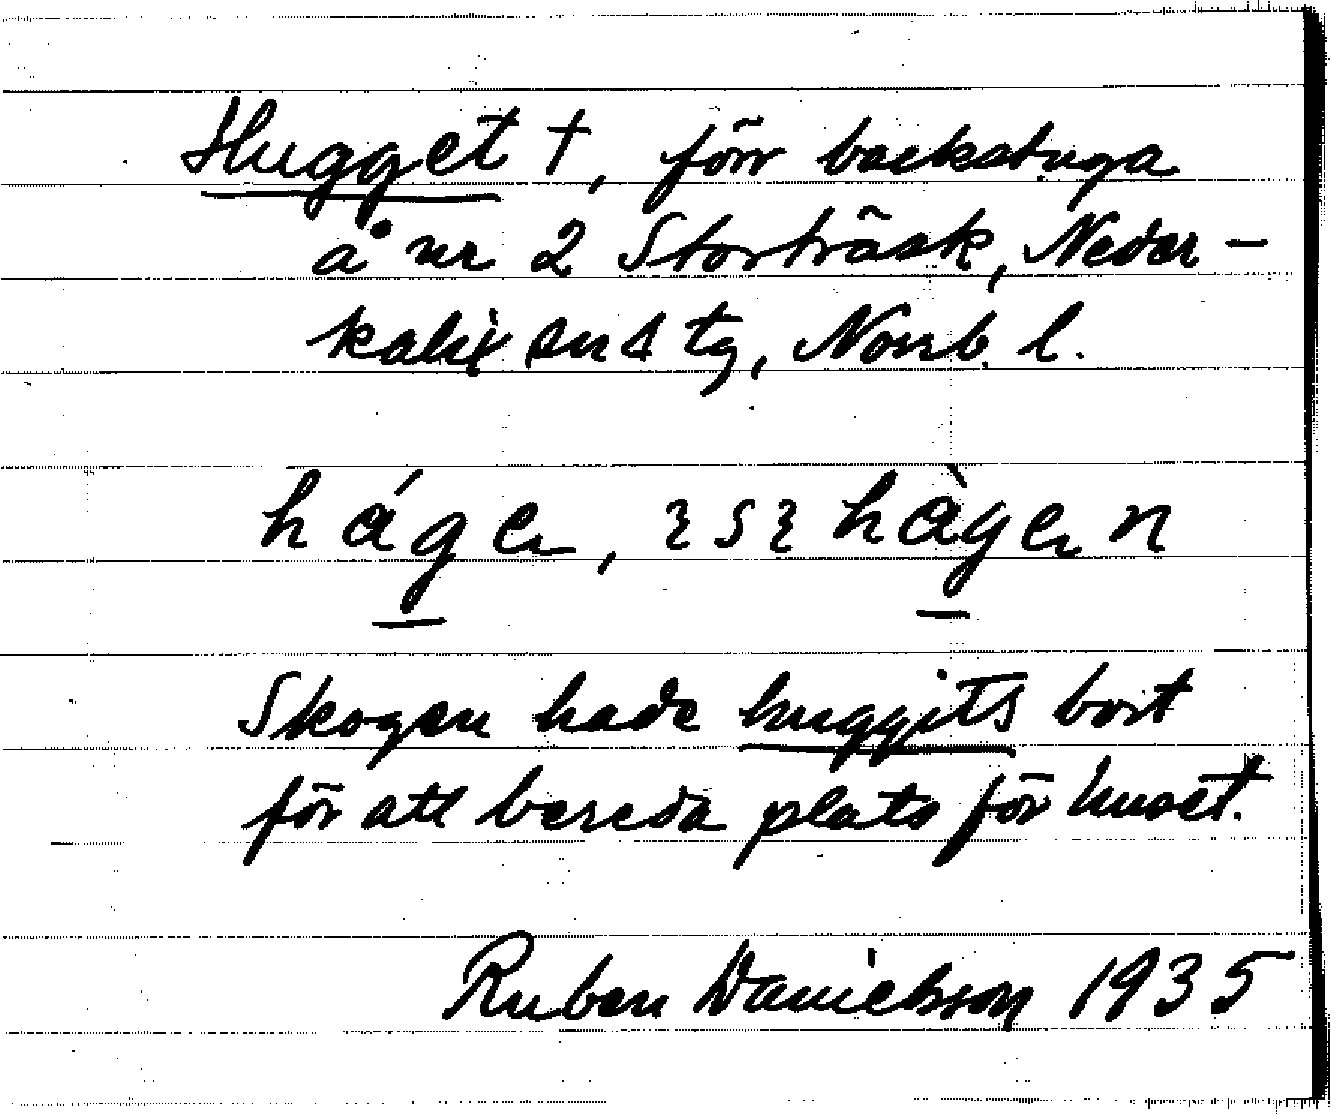 Hugget †, förr backstuga
å nr 2 Storträsk, Neder-
kalix sn & tg, Norrb. l.
Skogen hade huggits bort
för att bereda plats för huset.
Ruben Danielsson 1935